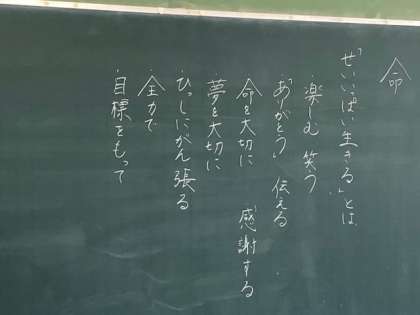 命
「せいいっぱい生きる」とは
・楽しむ 笑う
・「ありがとう」 伝える
・命を大切に 感謝する
・夢を大切に
・ひっしにがん張る
・全力で
・目標をもって